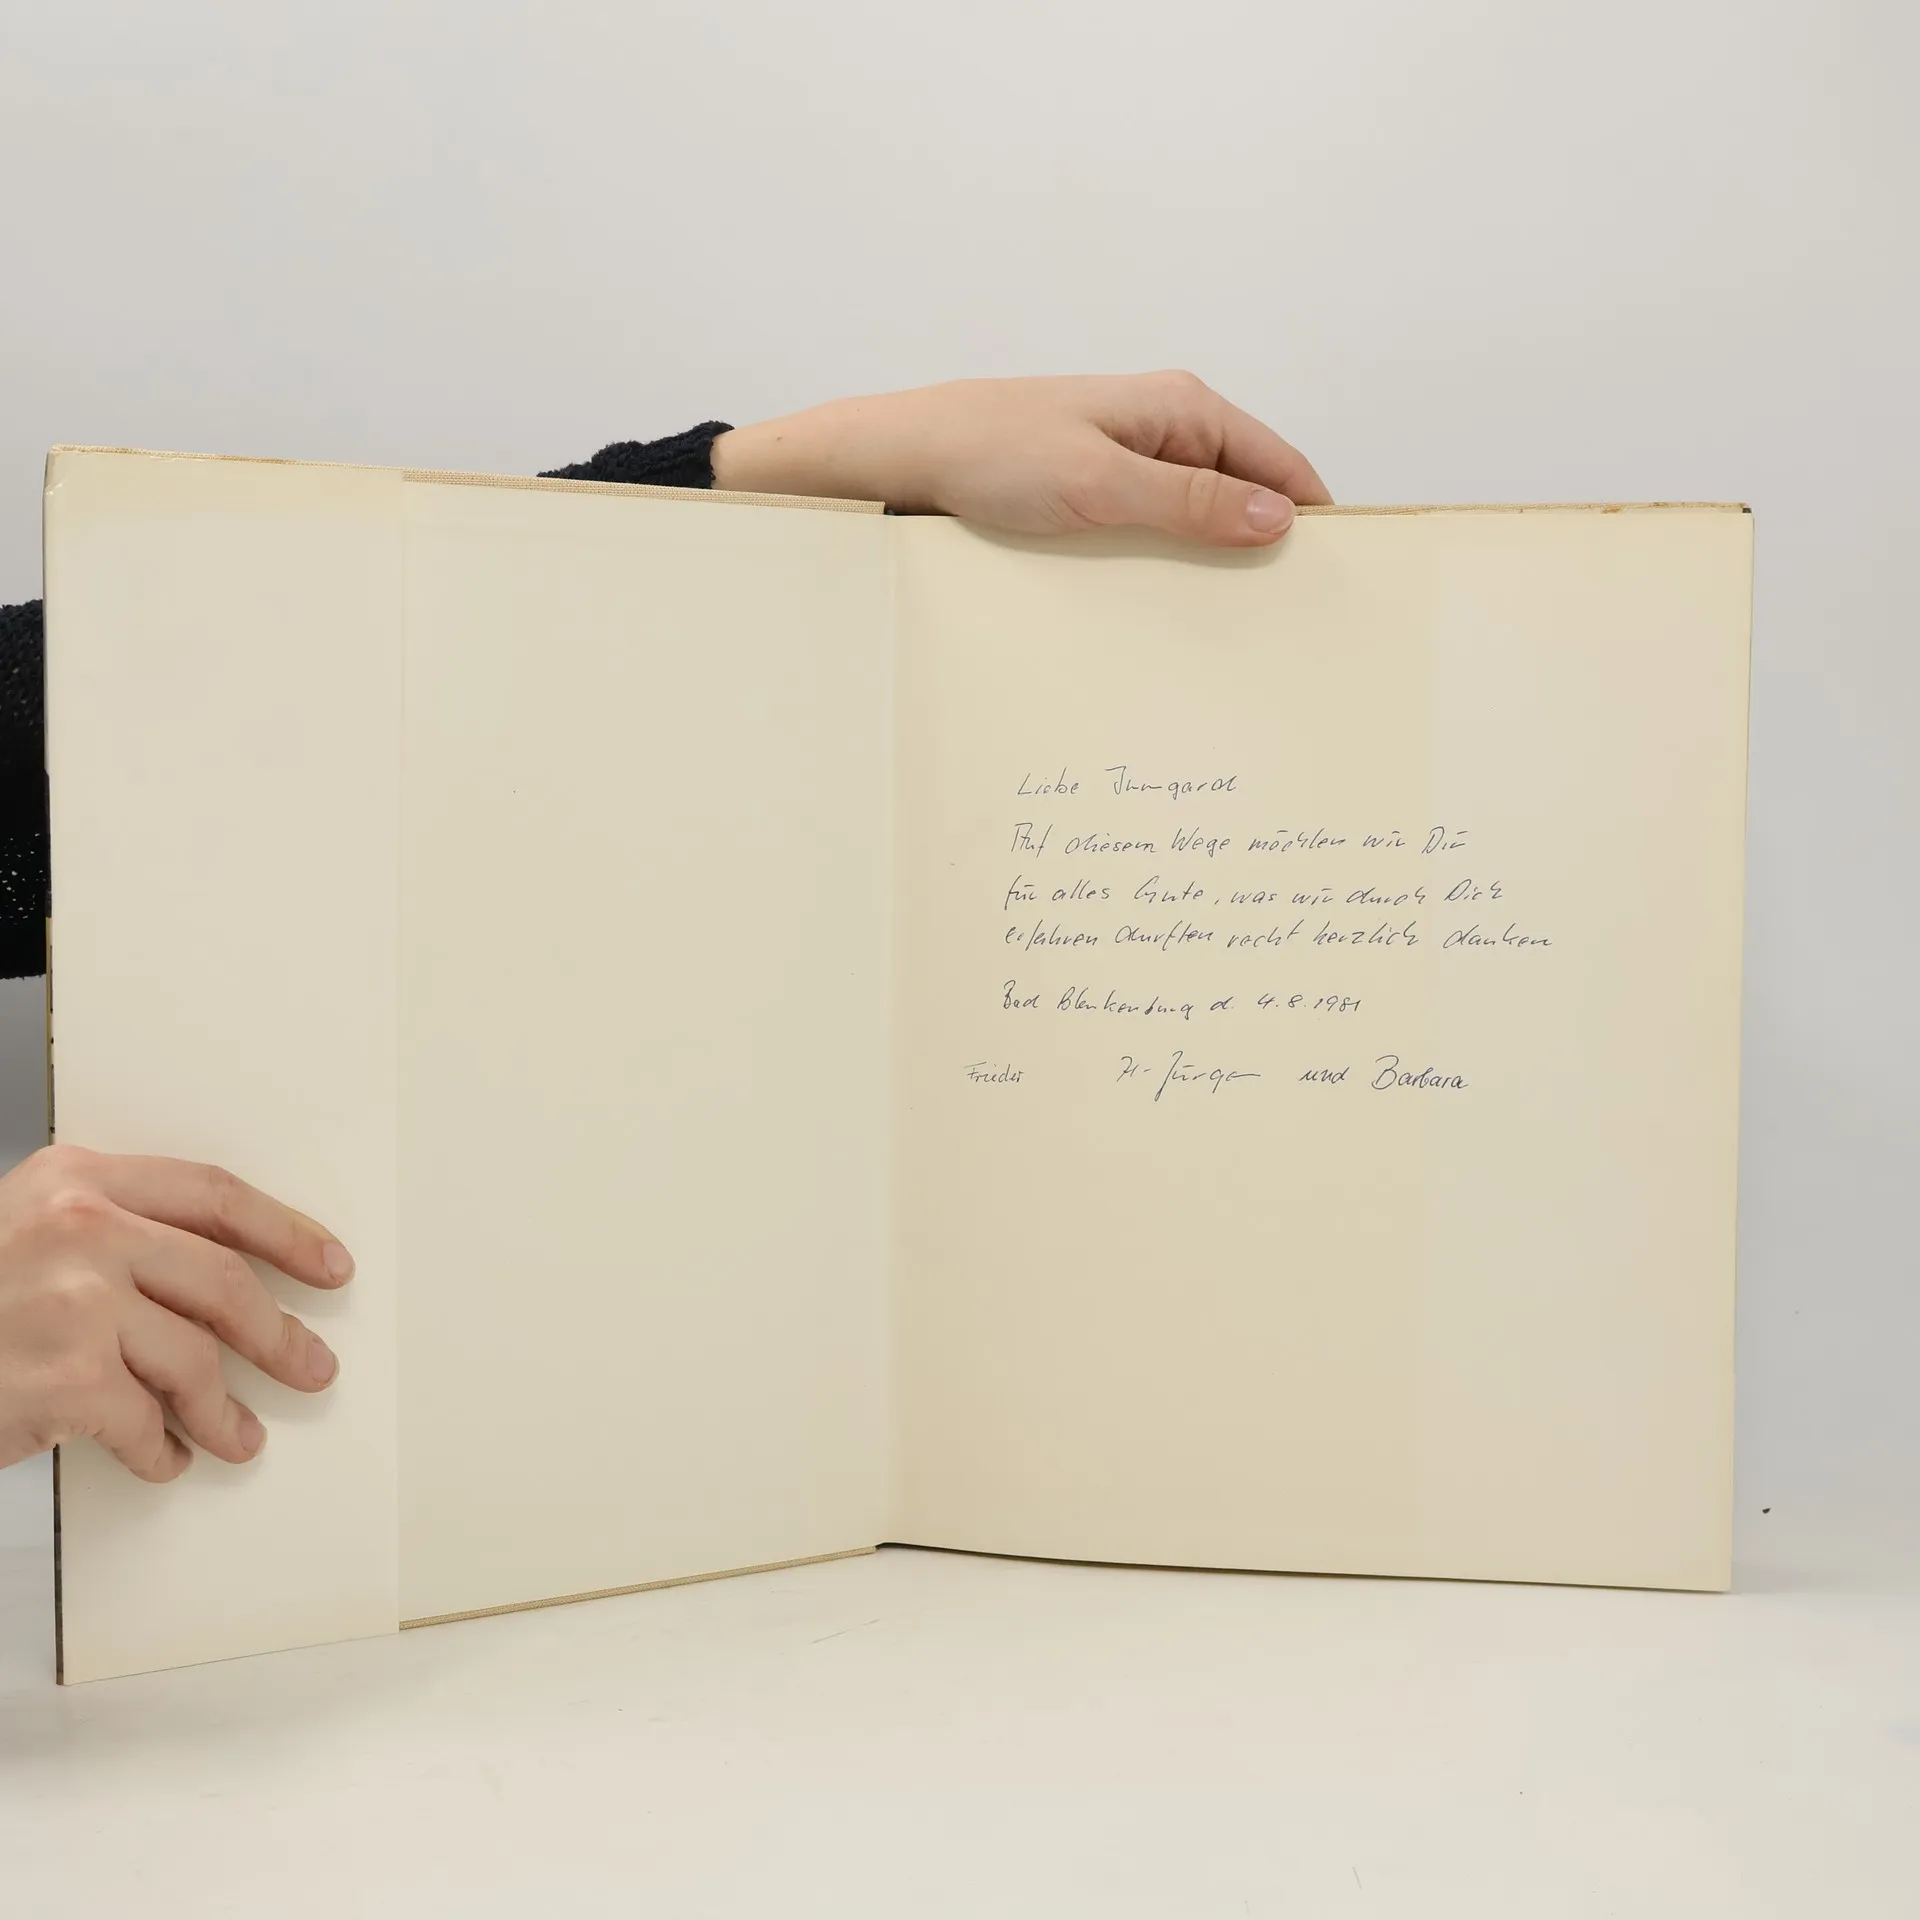 Liebe Irmgard
Auf diesem Wege möchten wir Dir
für alles Gute, was wir durch Dich
erfahren durften recht herzlich danken
Bad Blankenburg d. 4.8.1981
Frieder H-Jürgen und Barbara